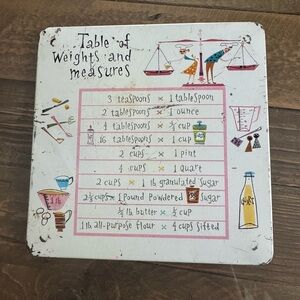 Table of
Weights and
measures
3 teaspoons × 1 tablespoon
2 tablespoons × 1 ounce
4 tablespoons × ¼ cup
16 tablespoons × 1 cup
2 cups × 1 pint
4 cups × 1 quart
2 cups × 1 lb granulated sugar
2½ cups × 1 Pound Powdered sugar
¼ lb butter × ½ cup
1 lb all-purpose flour × 4 cups sifted